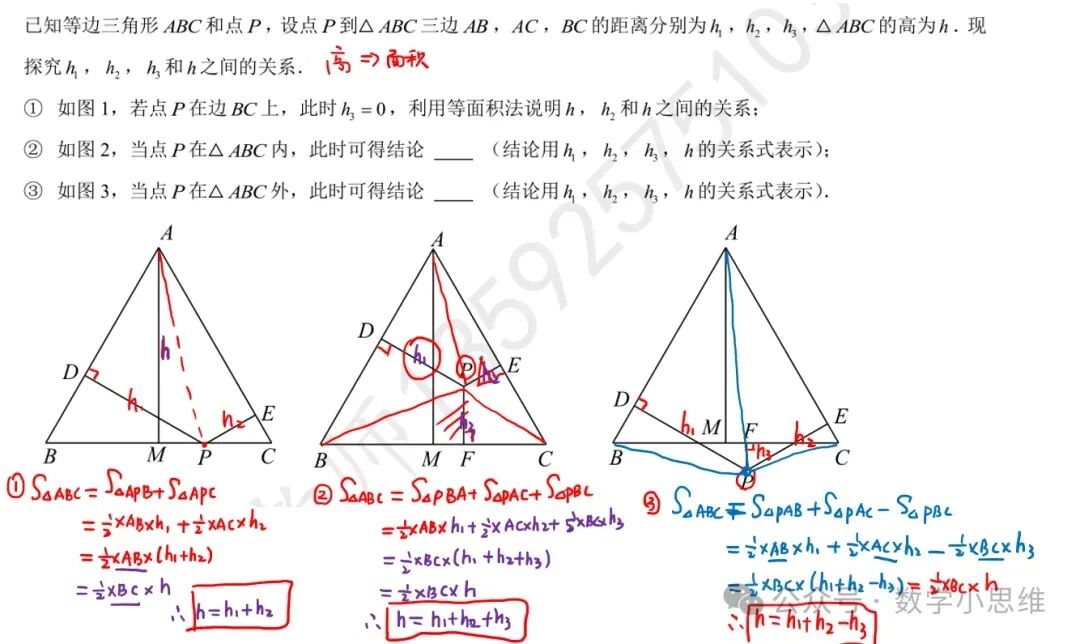 已知等边三角形 ABC 和点 P，设点 P 到△ ABC 三边 AB，AC，BC 的距离分别为 h₁，h₂，h₃，△ ABC 的高为 h．现
探究 h₁，h₂，h₃ 和 h 之间的关系． 高 => 面积
① 如图 1，若点 P 在边 BC 上，此时 h₃ = 0，利用等面积法说明 h，h₂ 和 h 之间的关系；
② 如图 2，当点 P 在△ ABC 内，此时可得结论 ____ （结论用 h₁，h₂，h₃，h 的关系式表示）；
③ 如图 3，当点 P 在△ ABC 外，此时可得结论 ____ （结论用 h₁，h₂，h₃，h 的关系式表示）．
A
D
E
B
M
P
C
h
h₁
h₂
A
D
E
P
B
M
F
C
h₁
h₂
h₃
A
D
E
M
F
B
C
P
h₁
h₂
h₃
① S△ABC = S△APB + S△APC
= ½×AB×h₁ + ½×AC×h₂
= ½×AB×(h₁+h₂)
= ½×BC×h
∴ h = h₁+h₂
② S△ABC = S△PBA + S△PAC + S△PBC
= ½×AB×h₁ + ½×AC×h₂ + ½×BC×h₃
= ½×BC×(h₁+h₂+h₃)
= ½×BC×h
∴ h = h₁+h₂+h₃
③ S△ABC = S△PAB + S△PAC − S△PBC
= ½×AB×h₁ + ½×AC×h₂ − ½×BC×h₃
= ½×BC×(h₁+h₂−h₃) = ½×BC×h
∴ h = h₁+h₂−h₃
公众号 · 数学小思维
师13592575103